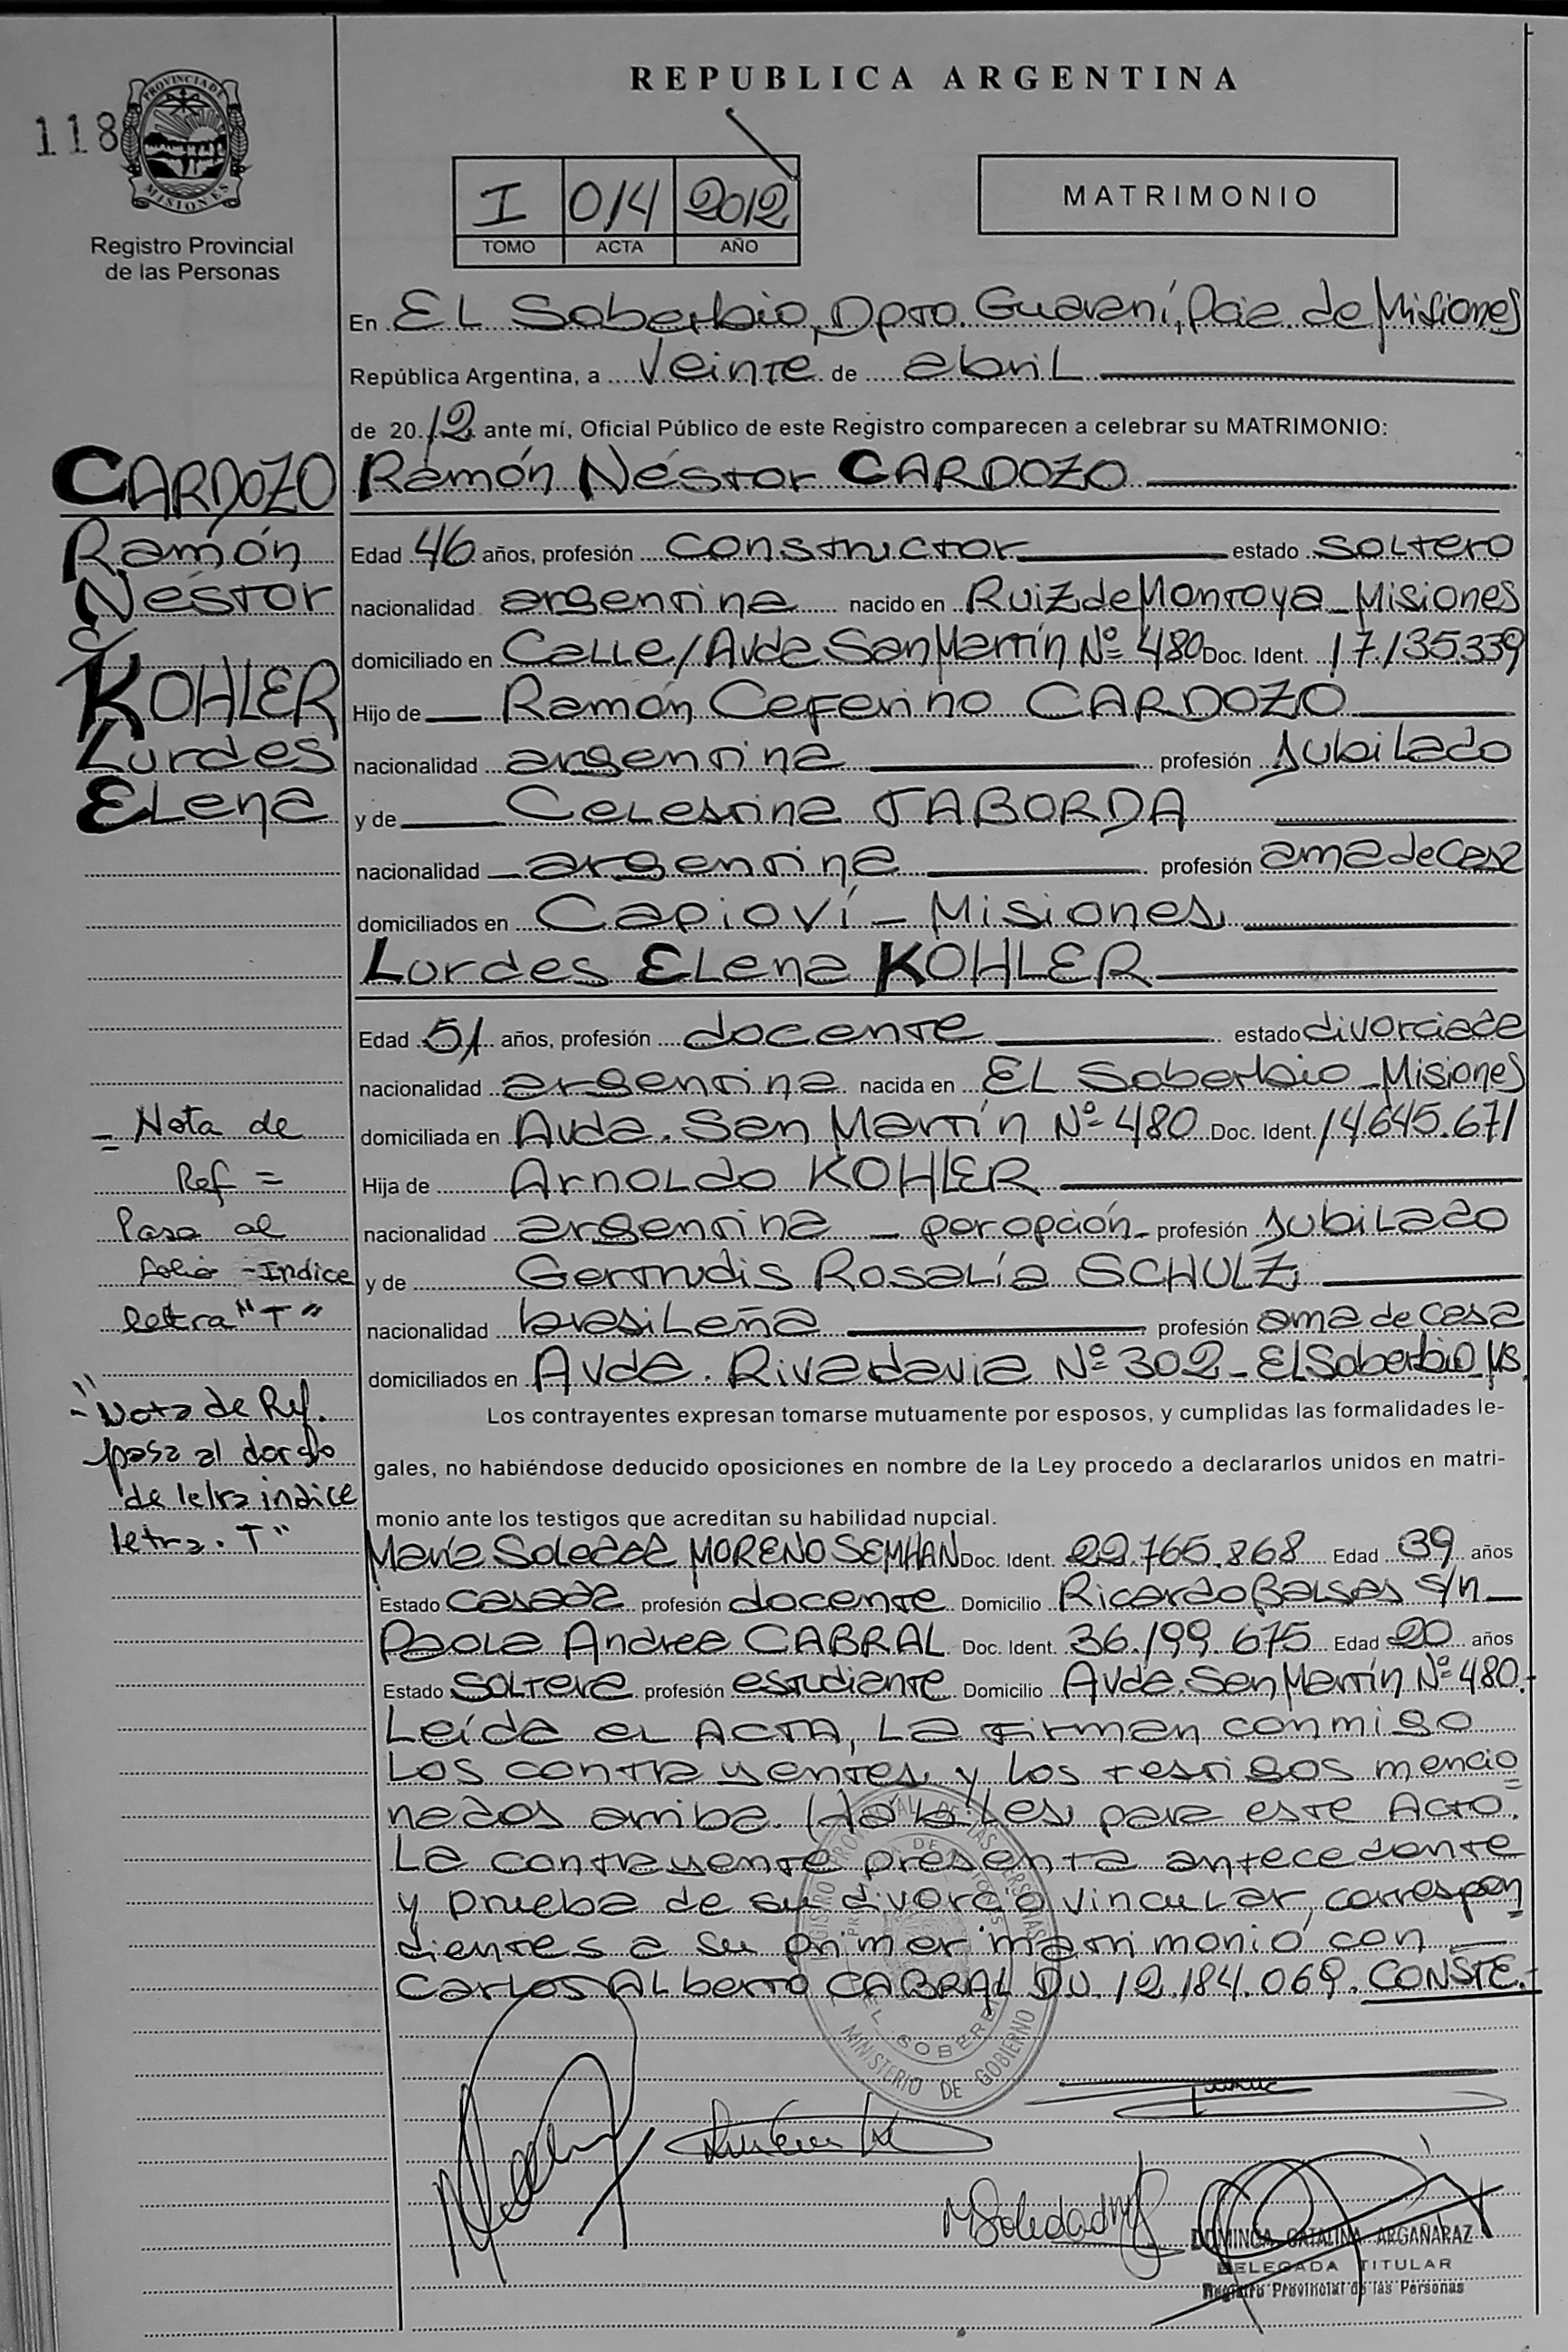 REPUBLICA ARGENTINA
118
PROVINCIA DE MISIONES
Registro Provincial
de las Personas
I 014 2012
TOMO ACTA AÑO
MATRIMONIO
En EL Soberbio, Dpto. Guaraní, Pcia. de Misiones
República Argentina, a veinte de abril
de 2012 ante mí, Oficial Público de este Registro comparecen a celebrar su MATRIMONIO:
CARDOZO
Ramón
Néstor
c/
KOHLER
Lurdes
Elena
Ramón Néstor CARDOZO
Edad 46 años, profesión constructor estado soltero
nacionalidad argentina nacido en Ruiz de Montoya - Misiones
domiciliado en Calle/Avda San Martín Nº 480 Doc. Ident. 17.135.339
Hijo de Ramón Ceferino CARDOZO
nacionalidad argentina profesión jubilado
y de Celestina TABORDA
nacionalidad argentina profesión ama de casa
domiciliados en Capioví - Misiones
Lurdes Elena KOHLER
Edad 51 años, profesión docente estado divorciada
nacionalidad argentina nacida en EL Soberbio - Misiones
domiciliada en Avda. San Martín Nº 480 Doc. Ident. 14.645.671
Hija de Arnoldo KOHLER
nacionalidad argentina - por opción - profesión jubilado
y de Gertrudis Rosalía SCHULZ
nacionalidad brasileña profesión ama de casa
domiciliados en Avda. Rivadavia Nº 302 - El Soberbio Ms.
= Nota de
Ref =
Pasa al
folio - Indice
letra "T"
"Nota de Ref.
pasa al dorso
de letra indice
letra. T"
Los contrayentes expresan tomarse mutuamente por esposos, y cumplidas las formalidades le-
gales, no habiéndose deducido oposiciones en nombre de la Ley procedo a declararlos unidos en matri-
monio ante los testigos que acreditan su habilidad nupcial.
María Soledad MORENO SEMHAN Doc. Ident. 22.765.868 Edad 39 años
Estado casada profesión docente Domicilio Ricardo Balsas s/n
Paola Andrea CABRAL Doc. Ident. 36.199.675 Edad 20 años
Estado soltera profesión estudiante Domicilio Avda. San Martín Nº 480.-
Leída el ACTA, la firman conmigo
los contrayentes y los testigos mencio=
nados arriba. Hábiles para este Acto.
La contrayente presenta antecedente
y prueba de su divorcio vincular, correspon=
dientes a su primer matrimonio con
Carlos Alberto CABRAL DU. 12.184.069. CONSTE.-
REGISTRO PROVINCIAL DE LAS PERSONAS
MINISTERIO DE GOBIERNO
EL SOBERBIO
MSoledad
DOMINGA CATALINA ARGAÑARAZ
DELEGADA TITULAR
Registro Provincial de las Personas